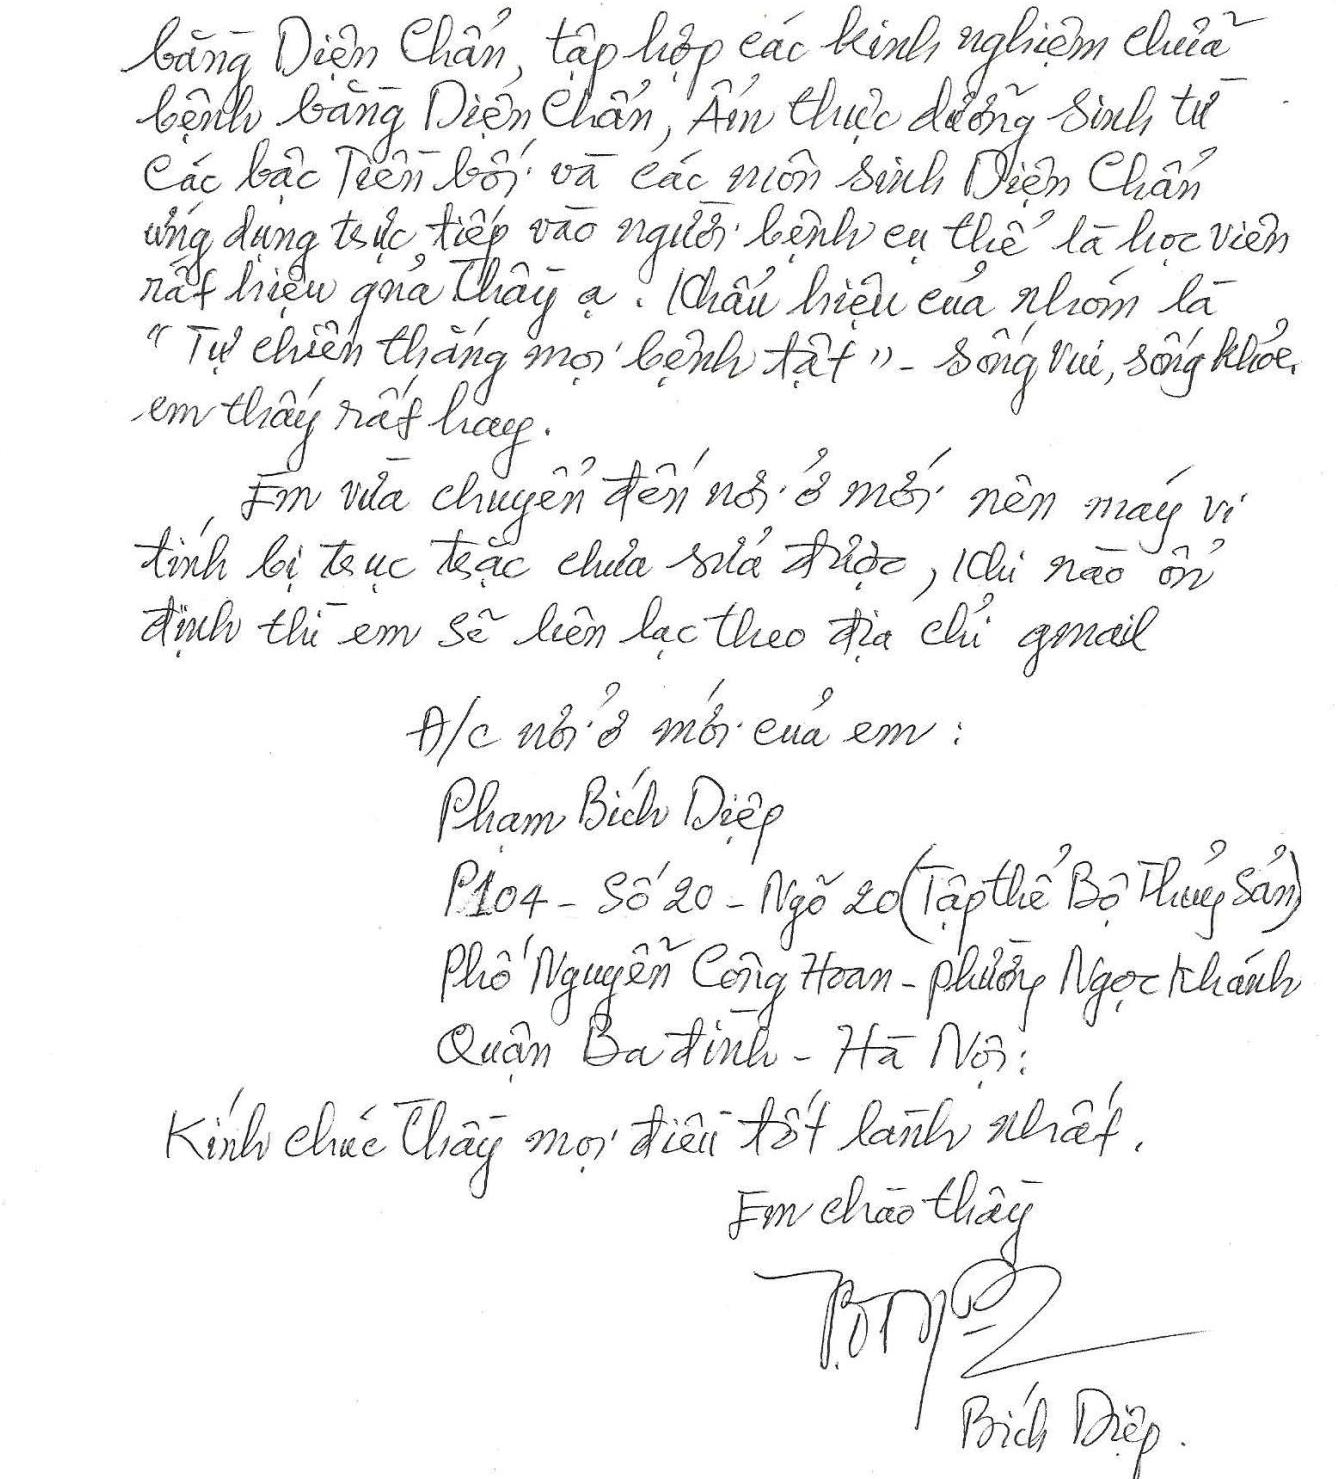 bằng Diện Chẩn, tập hợp các kinh nghiệm chữa
bệnh bằng Diện Chẩn, Ẩm thực dưỡng sinh từ
Các bậc Tiền bối và các môn sinh Diện Chẩn
ứng dụng trực tiếp vào người bệnh cụ thể là học viên
rất hiệu quả Thầy ạ. Khẩu hiệu của nhóm là
"Tự chiến thắng mọi bệnh tật" - sống vui, sống khỏe.
em thấy rất hay.
Em vừa chuyển đến nơi ở mới nên máy vi
tính bị trục trặc chưa sửa được, Khi nào ổn
định thì em sẽ liên lạc theo địa chỉ gmail
Đ/c nơi ở mới của em:
Phạm Bích Diệp
P104 - Số 20 - Ngõ 20 (Tập thể Bộ Thủy Sản)
Phố Nguyễn Công Hoan - phường Ngọc Khánh
Quận Ba đình - Hà Nội:
Kính chúc Thầy mọi điều tốt lành nhất.
Em chào thầy
Bích Diệp.